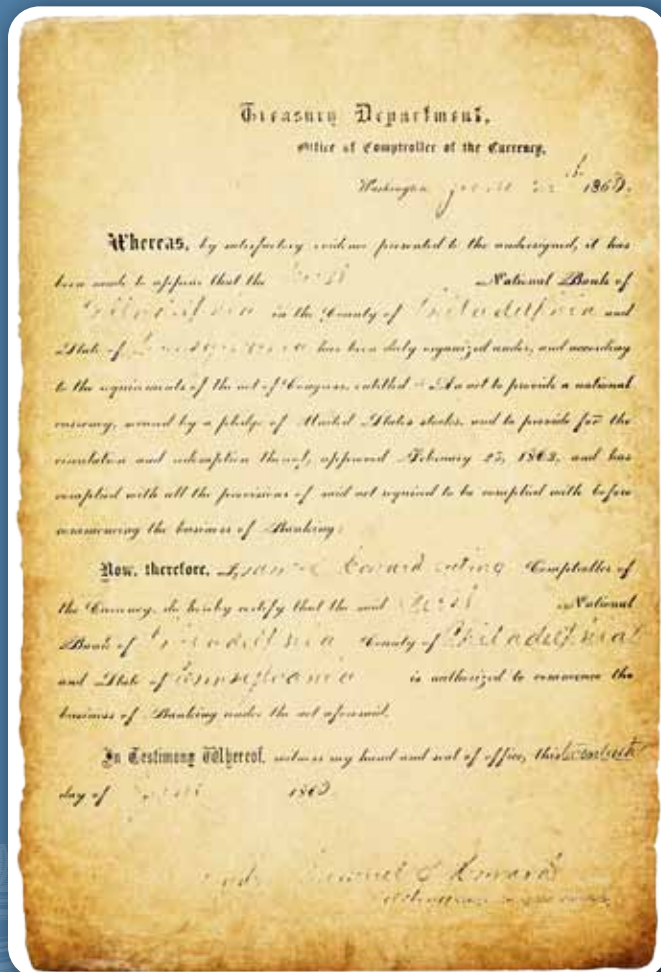 Treasury Department,
Office of Comptroller of the Currency,
Washington 1863.
Whereas, by satisfactory evidence presented to the undersigned, it has
been made to appear that the First National Bank of
Philadelphia in the County of Philadelphia and
State of Pennsylvania has been duly organized under, and according
to the requirements of the act of Congress, entitled "An act to provide a national
currency, secured by a pledge of United States stocks, and to provide for the
circulation and redemption thereof, approved February 25, 1863, and has
complied with all the provisions of said act required to be complied with before
commencing the business of Banking;
Now, therefore, I, Samuel Howard, acting Comptroller of
the Currency, do hereby certify that the said First National
Bank of Philadelphia County of Philadelphia
and State of Pennsylvania is authorized to commence the
business of Banking under the act aforesaid.
In Testimony Whereof, witness my hand and seal of office, this
day of 1863
Samuel Howard